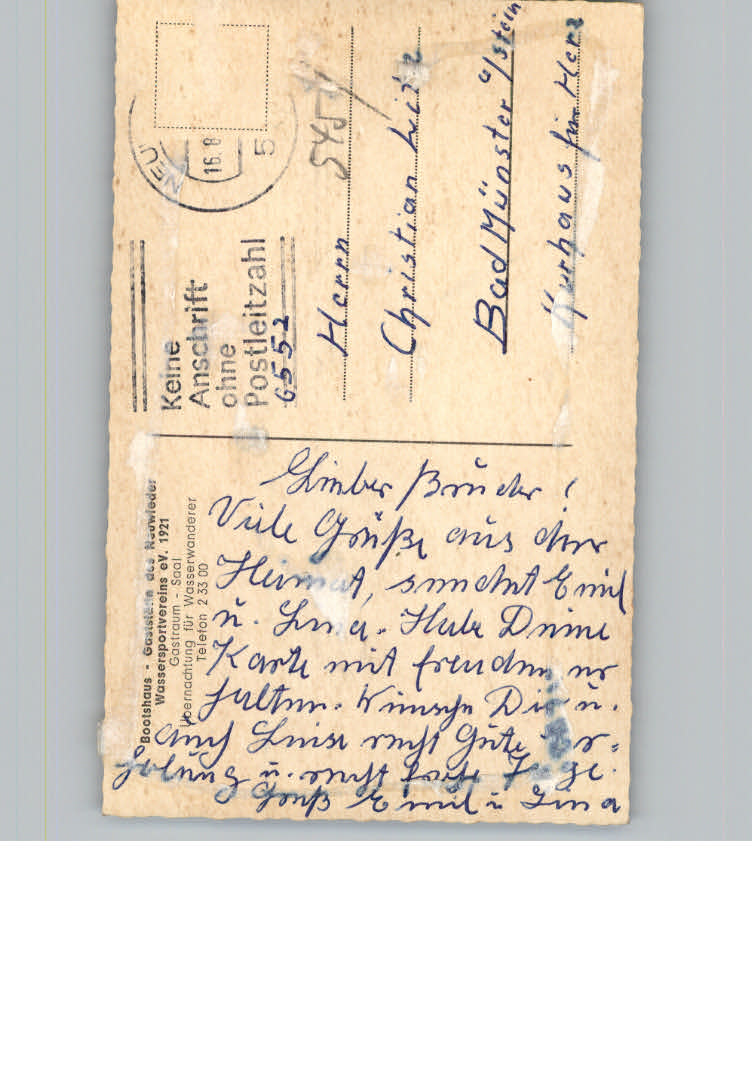 Bootshaus - Gaststätte des Neuwieder
Wassersportvereins eV. 1921
Gastraum - Saal
Übernachtung für Wasserwanderer
Telefon 2 33 00
Lieber Bruder!
Viele Grüße aus der
Heimat, sendet Emil
u. Lina. Habe Deine
Karte mit freuden er
halten. Wünsche Dir u.
auch Luise recht Gute Er=
holung u. recht frohe Tage.
Gruß Emil u Lina
NEU
16.8
5
Keine
Anschrift
ohne
Postleitzahl
6552
545
Herrn
Christian
Bad Münster a/stein
Kurhaus für Herz